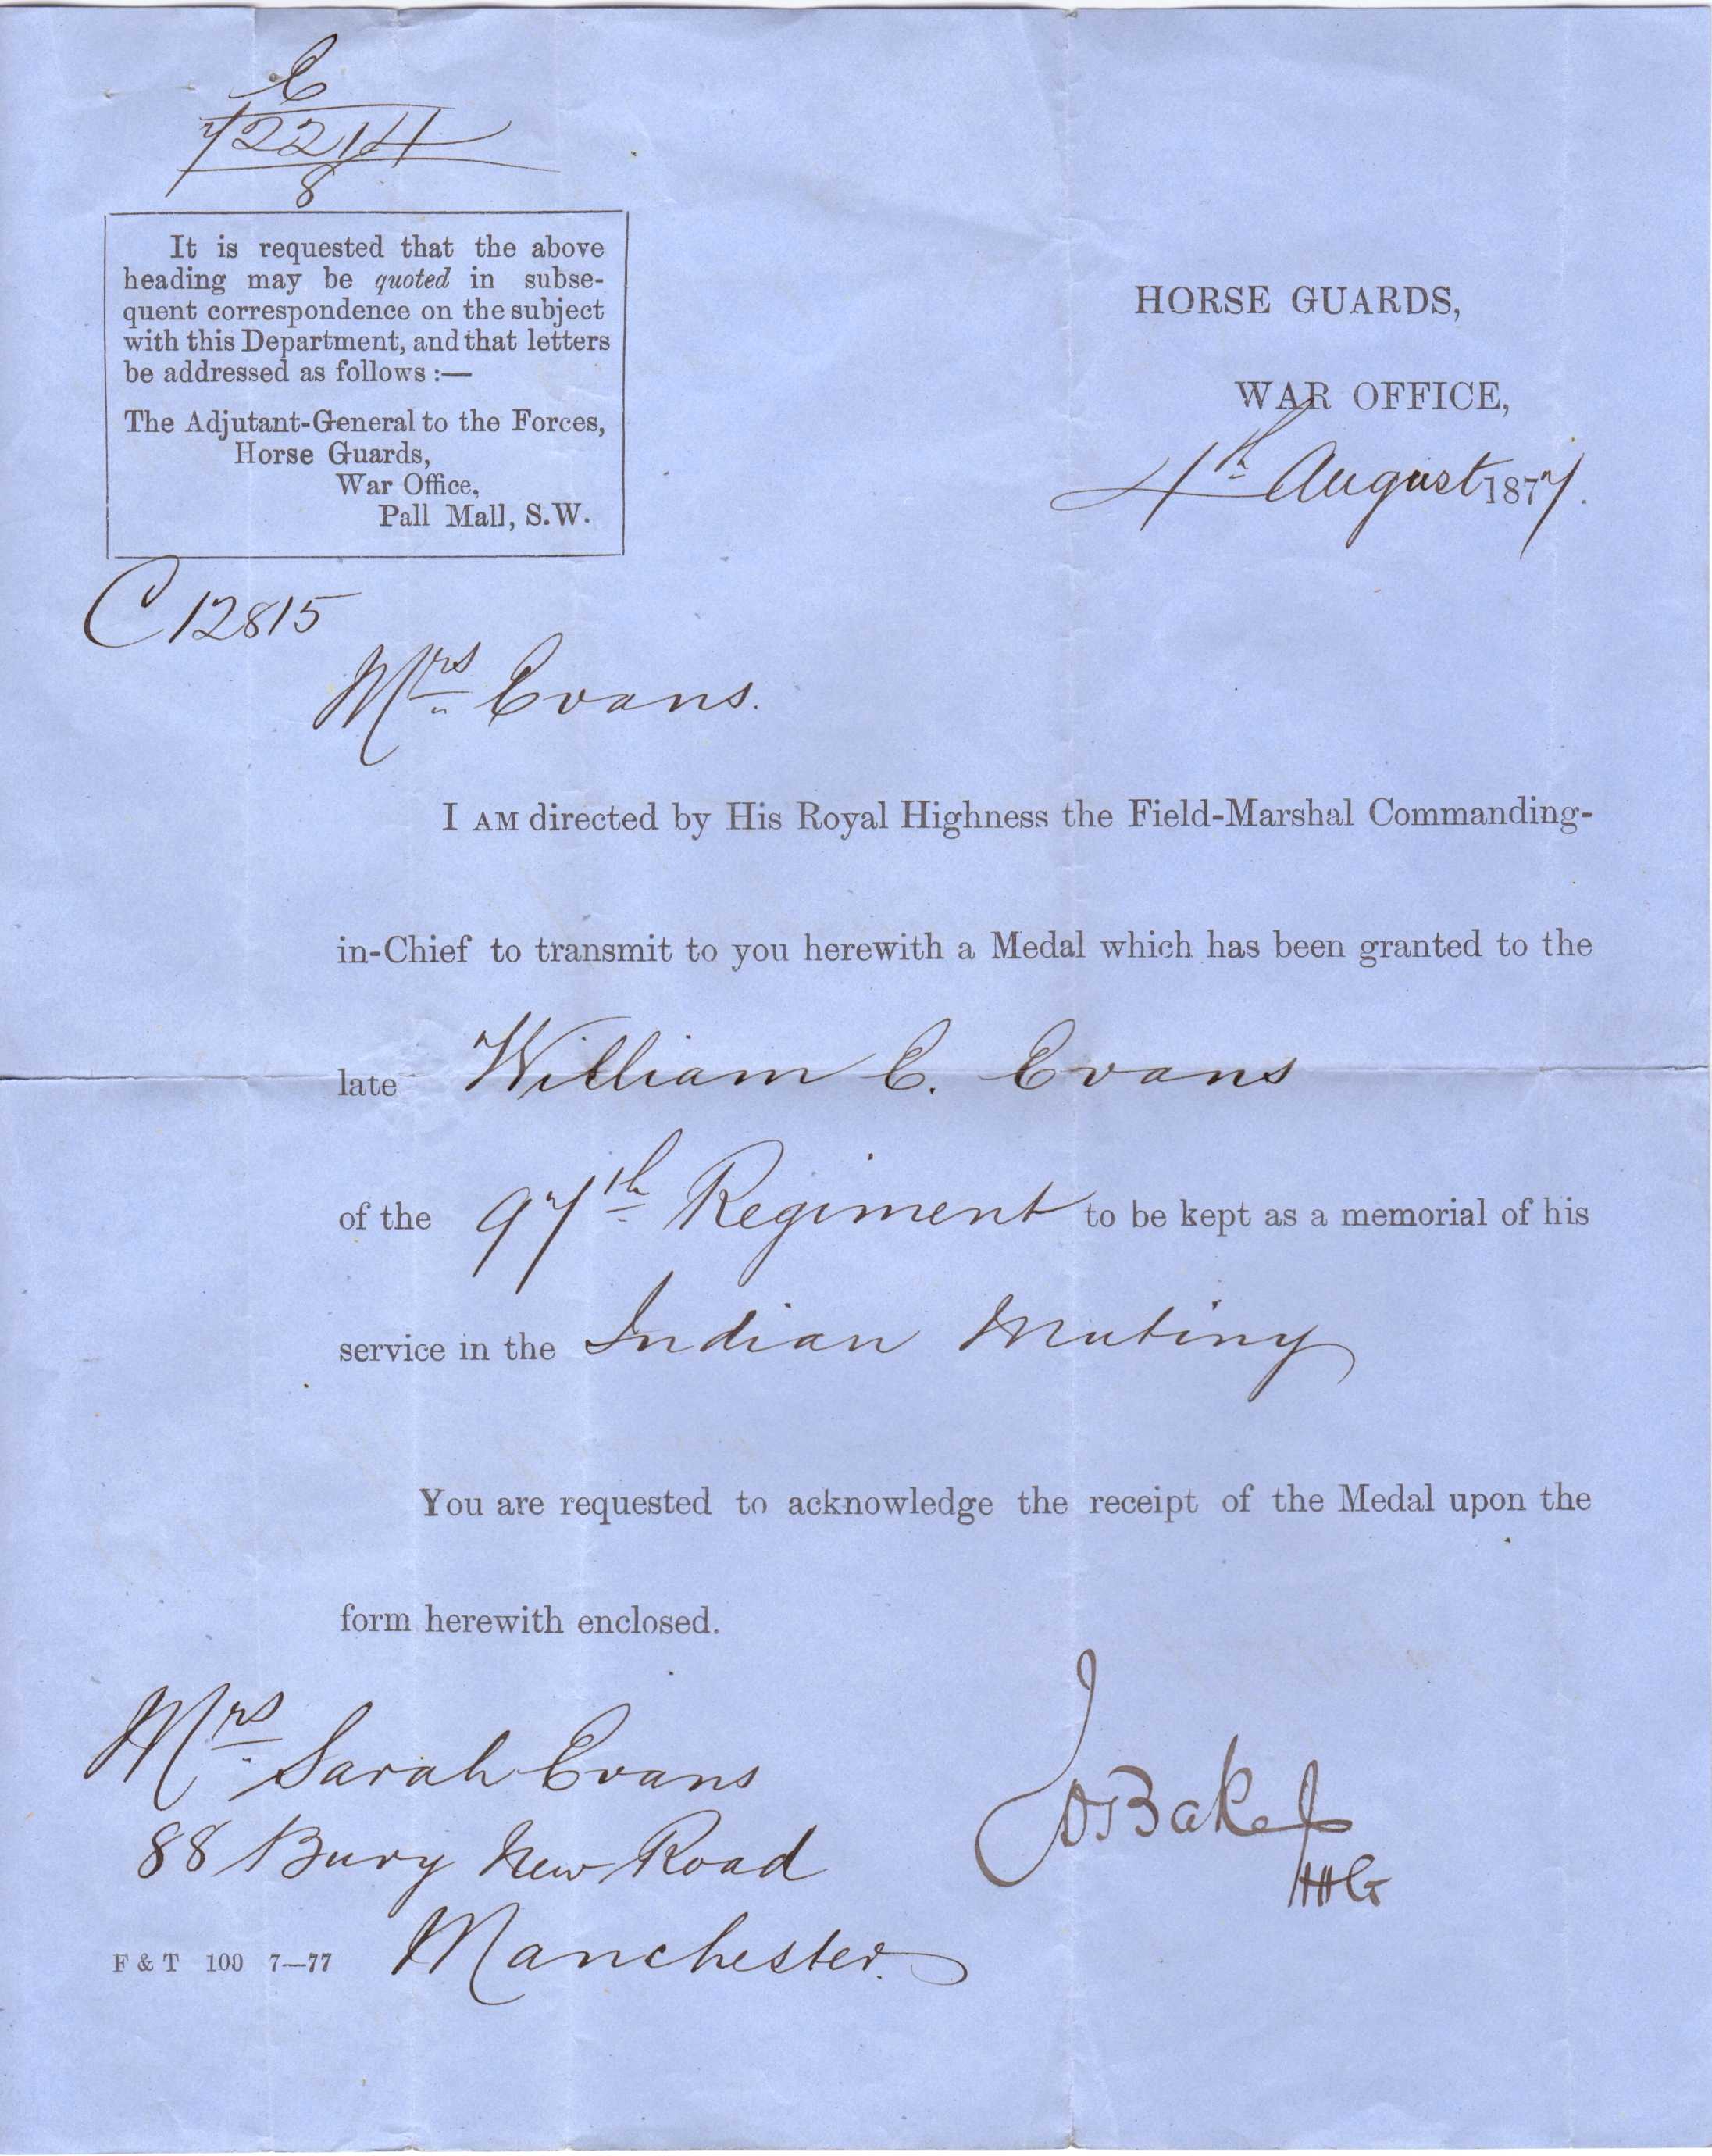 C
72214
8
It is requested that the above
heading may be quoted in subse-
quent correspondence on the subject
with this Department, and that letters
be addressed as follows :—
The Adjutant-General to the Forces,
Horse Guards,
War Office,
Pall Mall, S.W.
HORSE GUARDS,
WAR OFFICE,
4th August 1877.
C 12815
Mrs Evans.
I AM directed by His Royal Highness the Field-Marshal Commanding-
in-Chief to transmit to you herewith a Medal which has been granted to the
late William C. Evans
of the 97th Regiment to be kept as a memorial of his
service in the Indian Mutiny
You are requested to acknowledge the receipt of the Medal upon the
form herewith enclosed.
Mrs Sarah Evans
88 Bury New Road
Manchester.
Baker
F & T 100 7—77